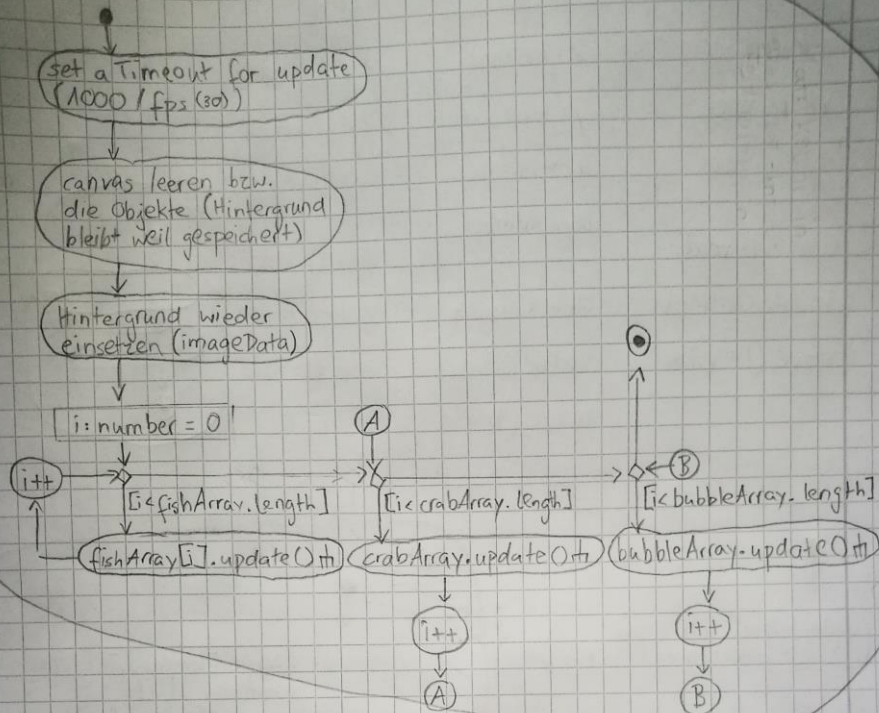 set a Timeout for update
(1000 / fps (30))
canvas leeren bzw.
die Objekte (Hintergrund
bleibt weil gespeichert)
Hintergrund wieder
einsetzen (imageData)
i: number = 0
A
i++
B
[i<fishArray.length]
[i<crabArray.length]
[i<bubbleArray.length]
fishArray[i].update()
crabArray.update()
bubbleArray.update()
i++
i++
A
B